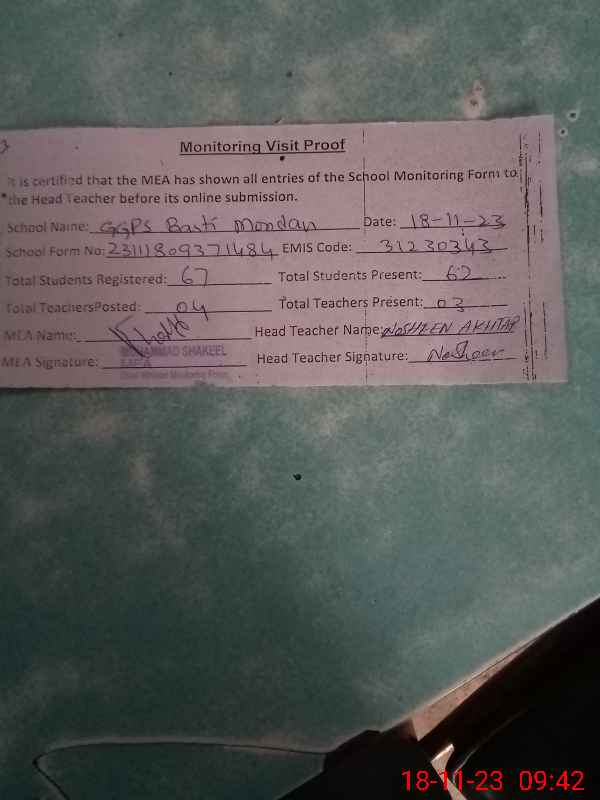 Monitoring Visit Proof
It is certified that the MEA has shown all entries of the School Monitoring Form to
the Head Teacher before its online submission.
School Name: GGPS Basti Mondan Date: 18-11-23
School Form No: 23111809371484 EMIS Code: 31230343
Total Students Registered: 67 Total Students Present: 62
Total TeachersPosted: 04 Total Teachers Present: 03
MEA Name: Head Teacher Name: NOSHEEN AKHTAR
MUHAMMAD SHAKEEL
MEA Signature: Head Teacher Signature: Nosheen
18-11-23 09:42